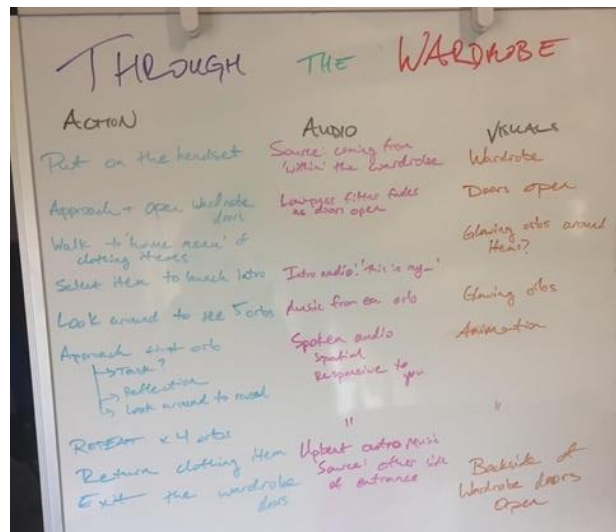 THROUGH THE WARDROBE
ACTION
Put on the headset
Approach + open wardrobe
doors
Walk to 'home menu' of
clothing items
Select item to launch intro
Look around to see 5 orbs
Approach first orb
→ Task?
→ Reflection
→ Look around to reveal
REPEAT x 4 orbs
Return clothing item
Exit the wardrobe
doors
AUDIO
Source: coming from
'within' the wardrobe
Low pass filter fades
as doors open
Intro audio: 'this is my_'
Music from ea orb
Spoken audio
spatial
responsive to you
"
Upbeat outro music
Source: other side
of entrance
VISUALS
Wardrobe
Doors open
Glowing orbs around
items?
Glowing orbs
Animation
"
Backside of
wardrobe doors
open